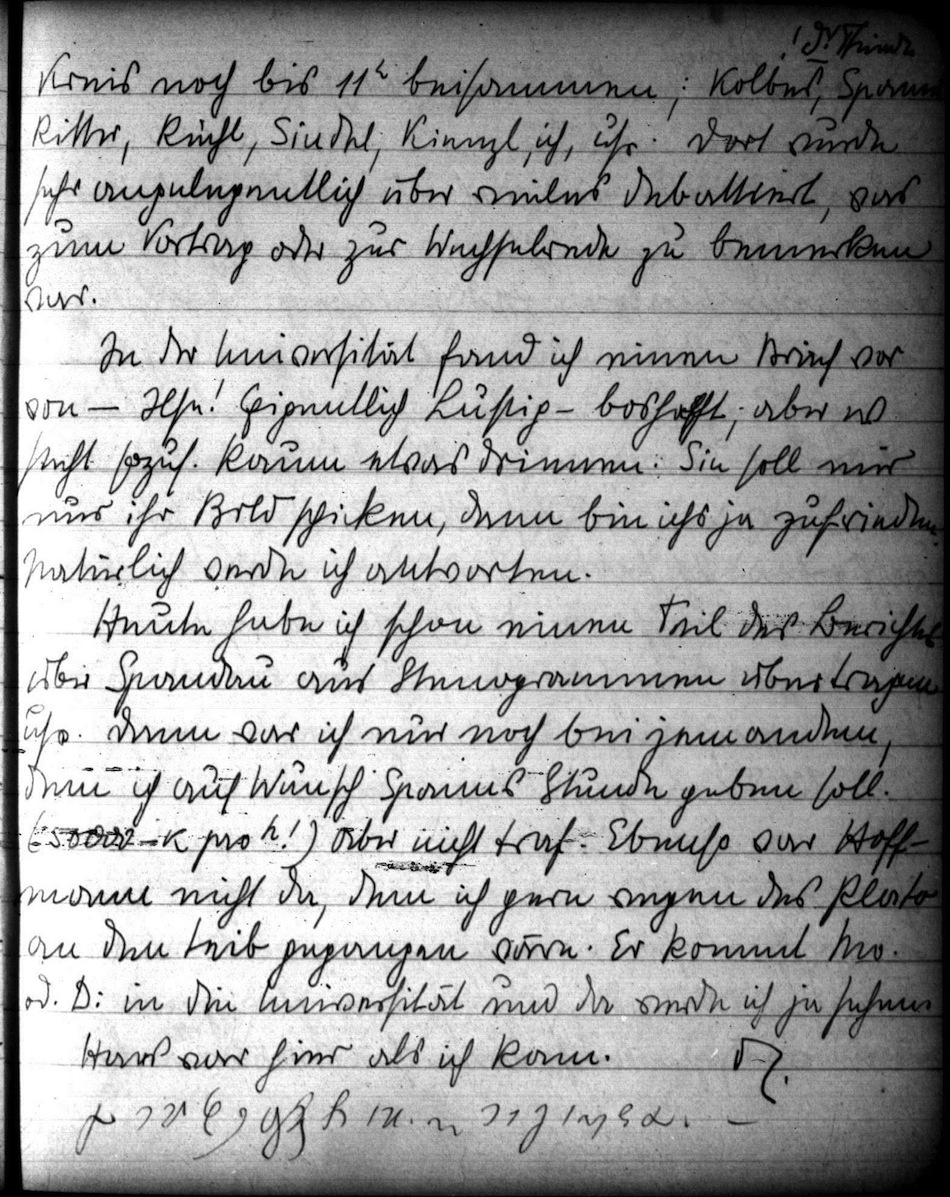 ! Dr Thirring
Kreis noch bis 11h beisammen; Kolbes, Spann
Ritter, Riehl, Seidel, Kienzl, ich, usf. Dort wurde
sehr angelegentlich über vieles debattiert, was
zum Vortrag oder zur Wechselrede zu bemerken
war.
In der Universität fand ich einen Brief vor
von — Ilse! Eigentlich lustig - boshaft; aber es
steht sozus. kaum etwas drinnen. Sie soll mir
nur ihr Bild schicken, dann bin ichs ja zufrieden.
Natürlich werde ich antworten.
Heute habe ich schon einen Teil des Berichtes
über Spandau aus Stenogrammen übertragen
usf. Dann war ich nur noch bei jemandem,
dem ich auf Wunsch Spanns Stunde geben soll.
(50000 - K pro h!) aber nicht traf. Ebenso war Hoff-
mann nicht da, dem ich gern wegen des Plato
an den Leib gegangen wäre. Er kommt Mo.
od. D: in die Universität und da werde ich ja sehen
Hans war hier als ich kam.